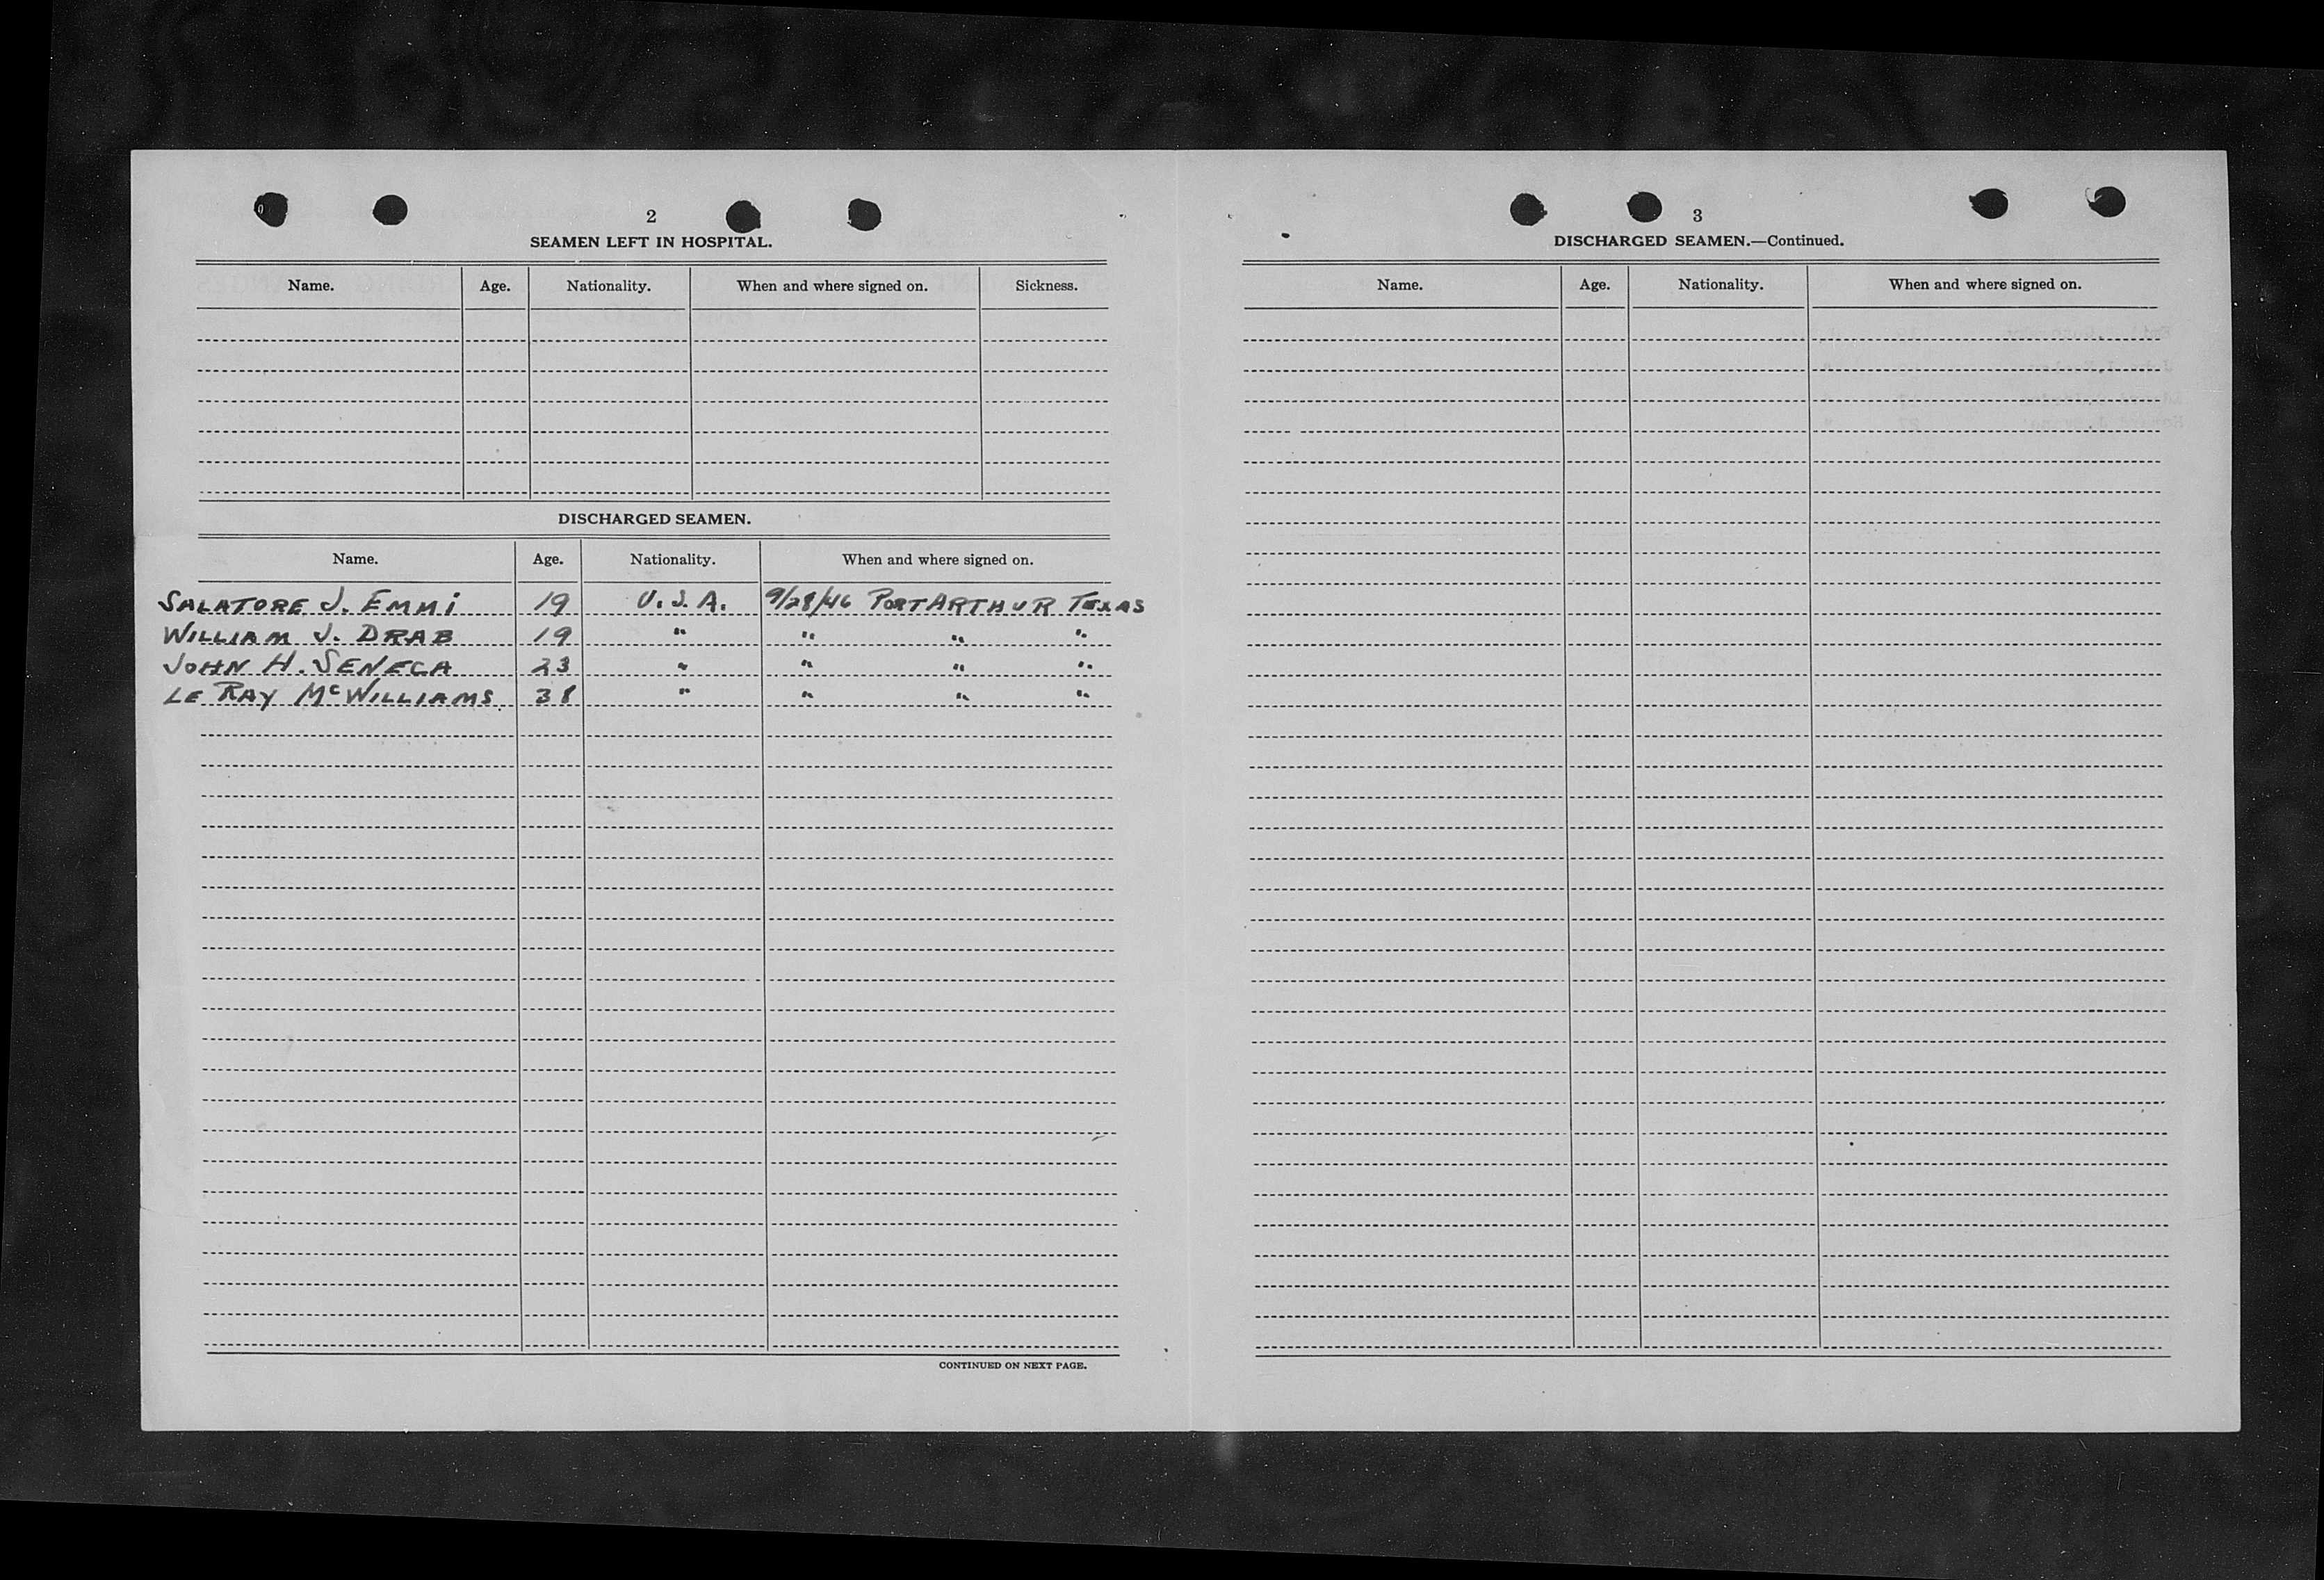 2
SEAMEN LEFT IN HOSPITAL.
Name. Age. Nationality. When and where signed on. Sickness.
DISCHARGED SEAMEN.
Name. Age. Nationality. When and where signed on.
SALATORE J. EMMI 19 U.S.A. 9/28/46 PORT ARTHUR TEXAS
WILLIAM J. DRAB 19 " " " "
JOHN H. SENECA 23 " " " "
LE RAY McWILLIAMS 38 " " " "
CONTINUED ON NEXT PAGE.
3
DISCHARGED SEAMEN.—Continued.
Name. Age. Nationality. When and where signed on.